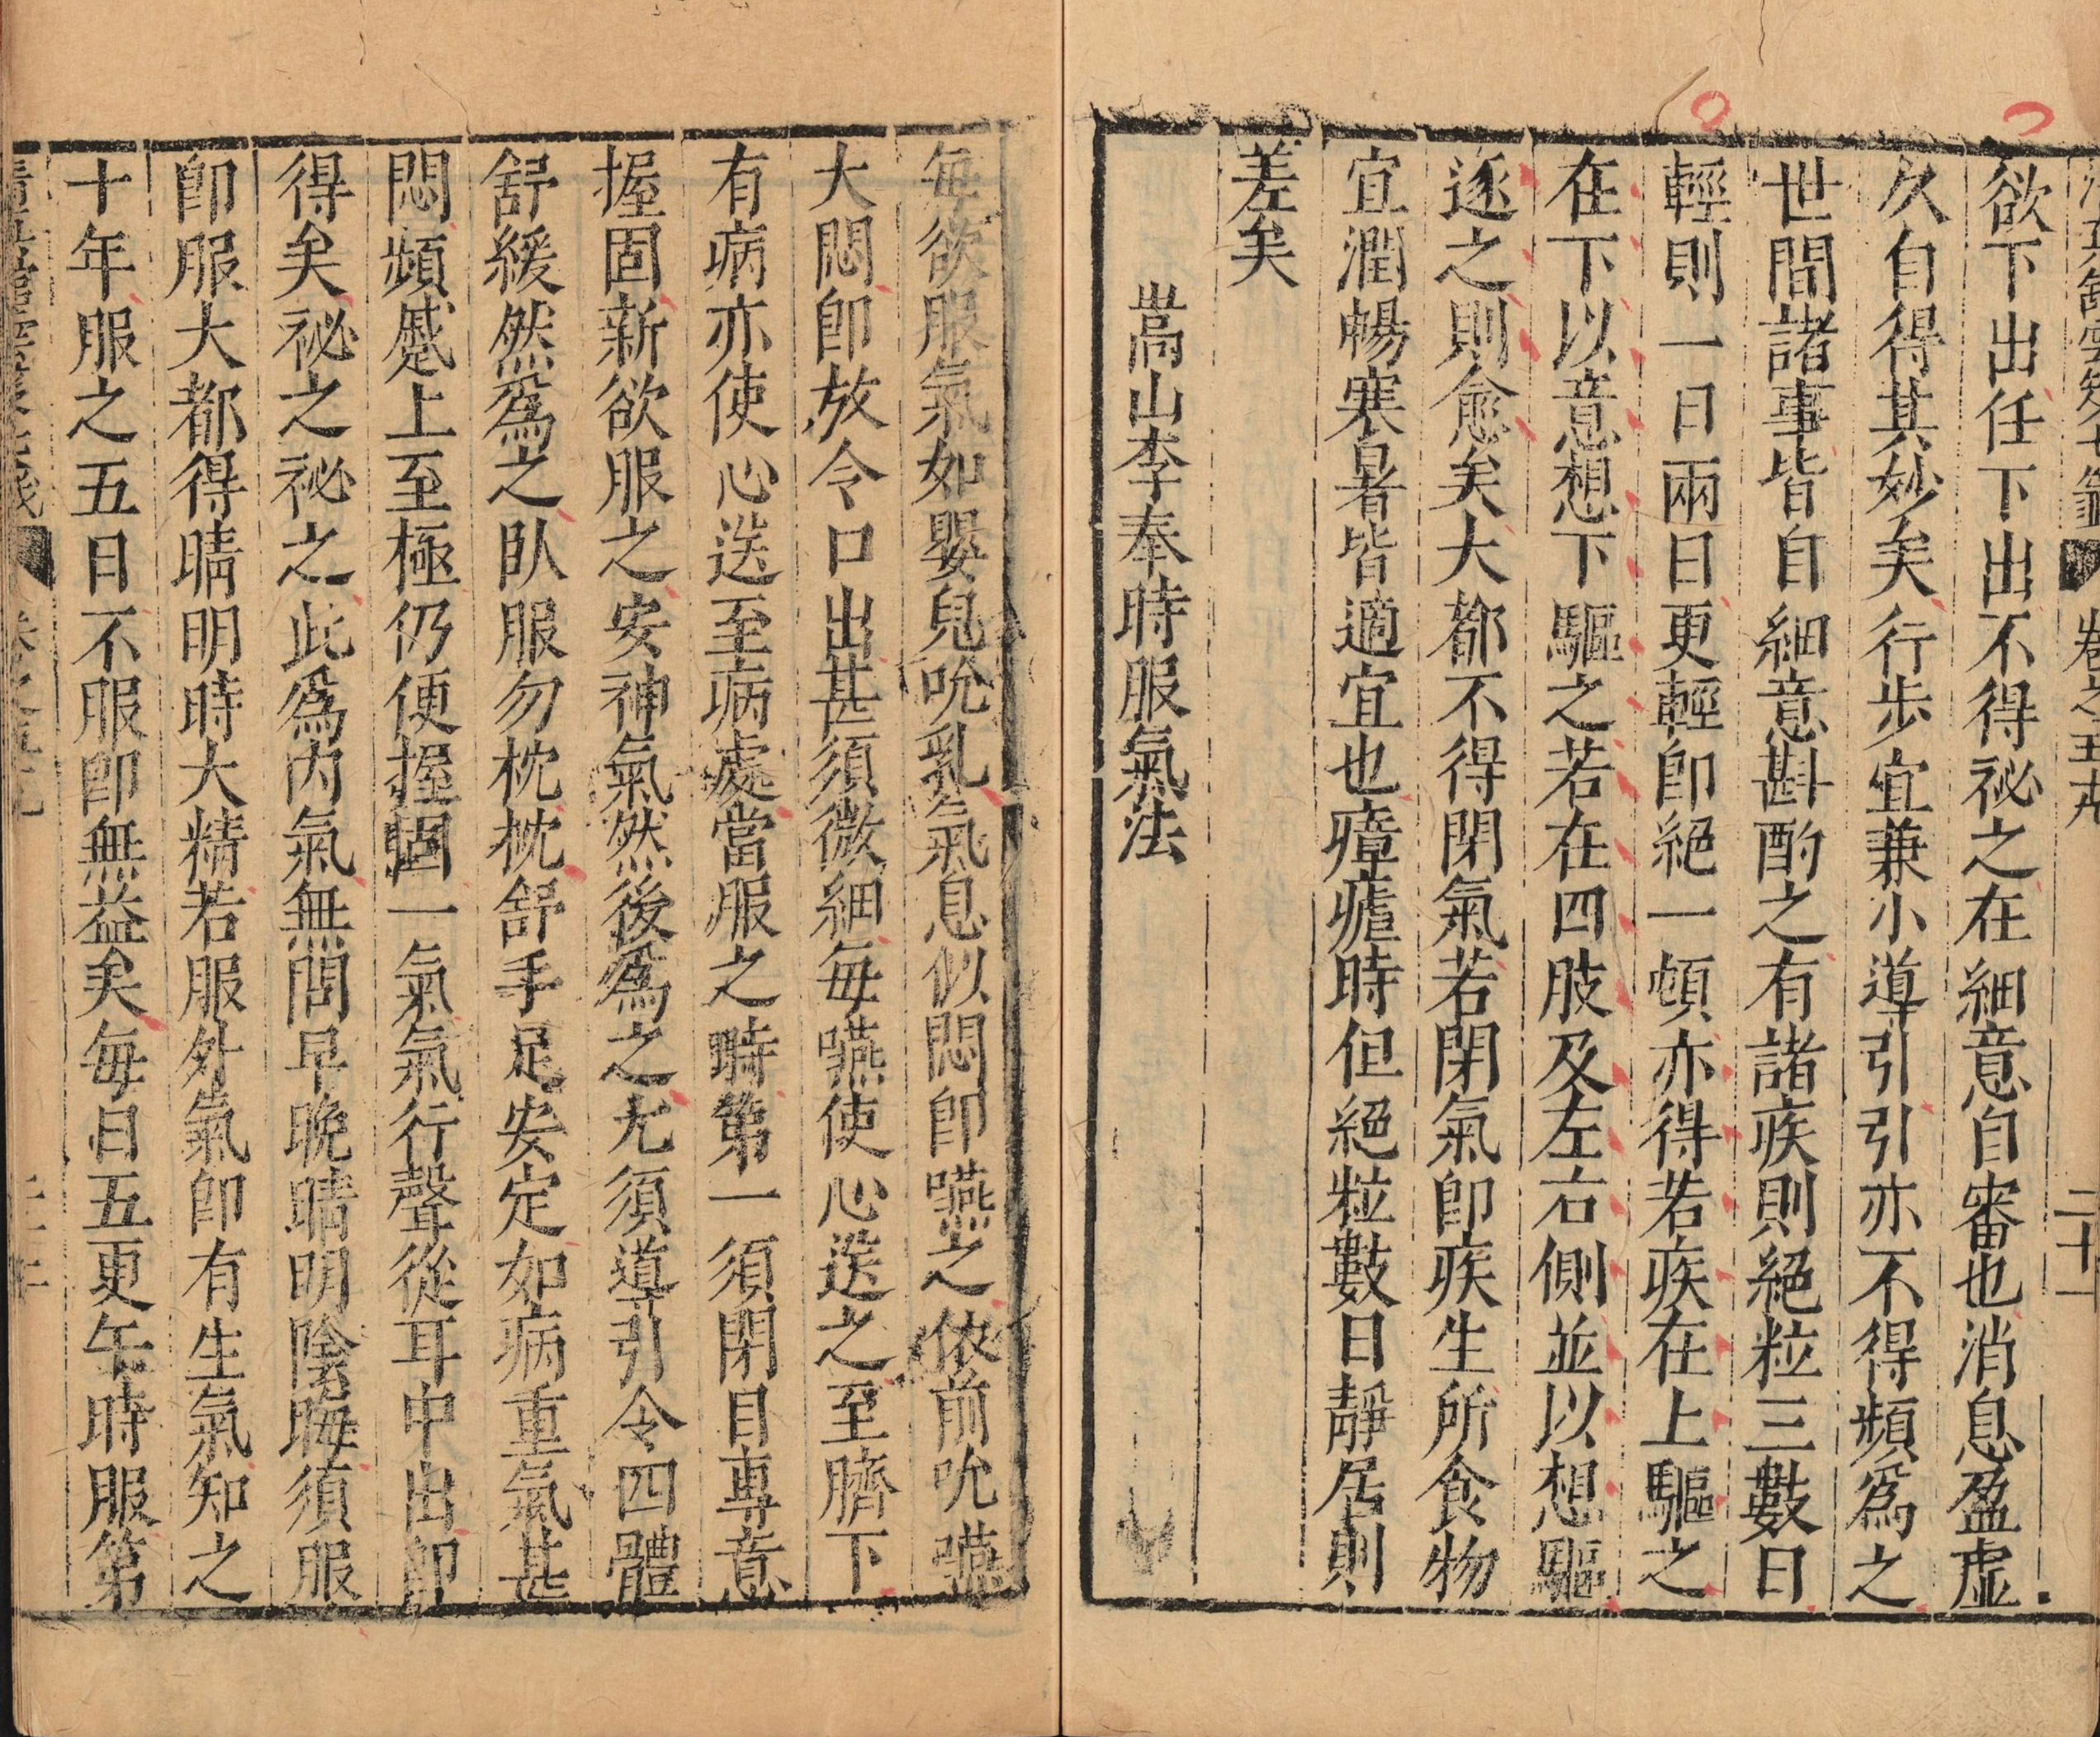 卷之五十九 二十一
欲下出任下出不得祕之在細意自審也消息盈虛
久自得其妙矣行步宜兼小導引引亦不得頻爲之
世間諸事皆自細意斟酌之有諸疾則絕粒三數日
輕則一日兩日更輕卽絕一頓亦得若疾在上驅之
在下以意想下驅之若在四肢及左右側並以想驅
逐之則愈矣大都不得閉氣若閉氣卽疾生所食物
宜潤暢寒暑皆適宜也瘴瘧時但絕粒數日靜居則
差矣
嵩山李奉時服氣法
每欲服氣如嬰兒吮乳氣息似悶卽嚥之依前吮嚥
大悶卽放令口出甚須微細每嚥使心送之至臍下
有病亦使心送至病處當服之時第一須閉目專意
握固新欲服之安神氣然後爲之尤須導引令四體
舒緩然爲之臥服勿枕枕舒手足安定如病重氣甚
悶頻蹙上至極仍便握固一氣氣行聲從耳中出卽
得矣祕之祕之此爲內氣無問早晚晴明陰晦須服
卽服大都得晴明時大精若服外氣卽有生氣知之
十年服之五日不服卽無益矣每日五更午時服第